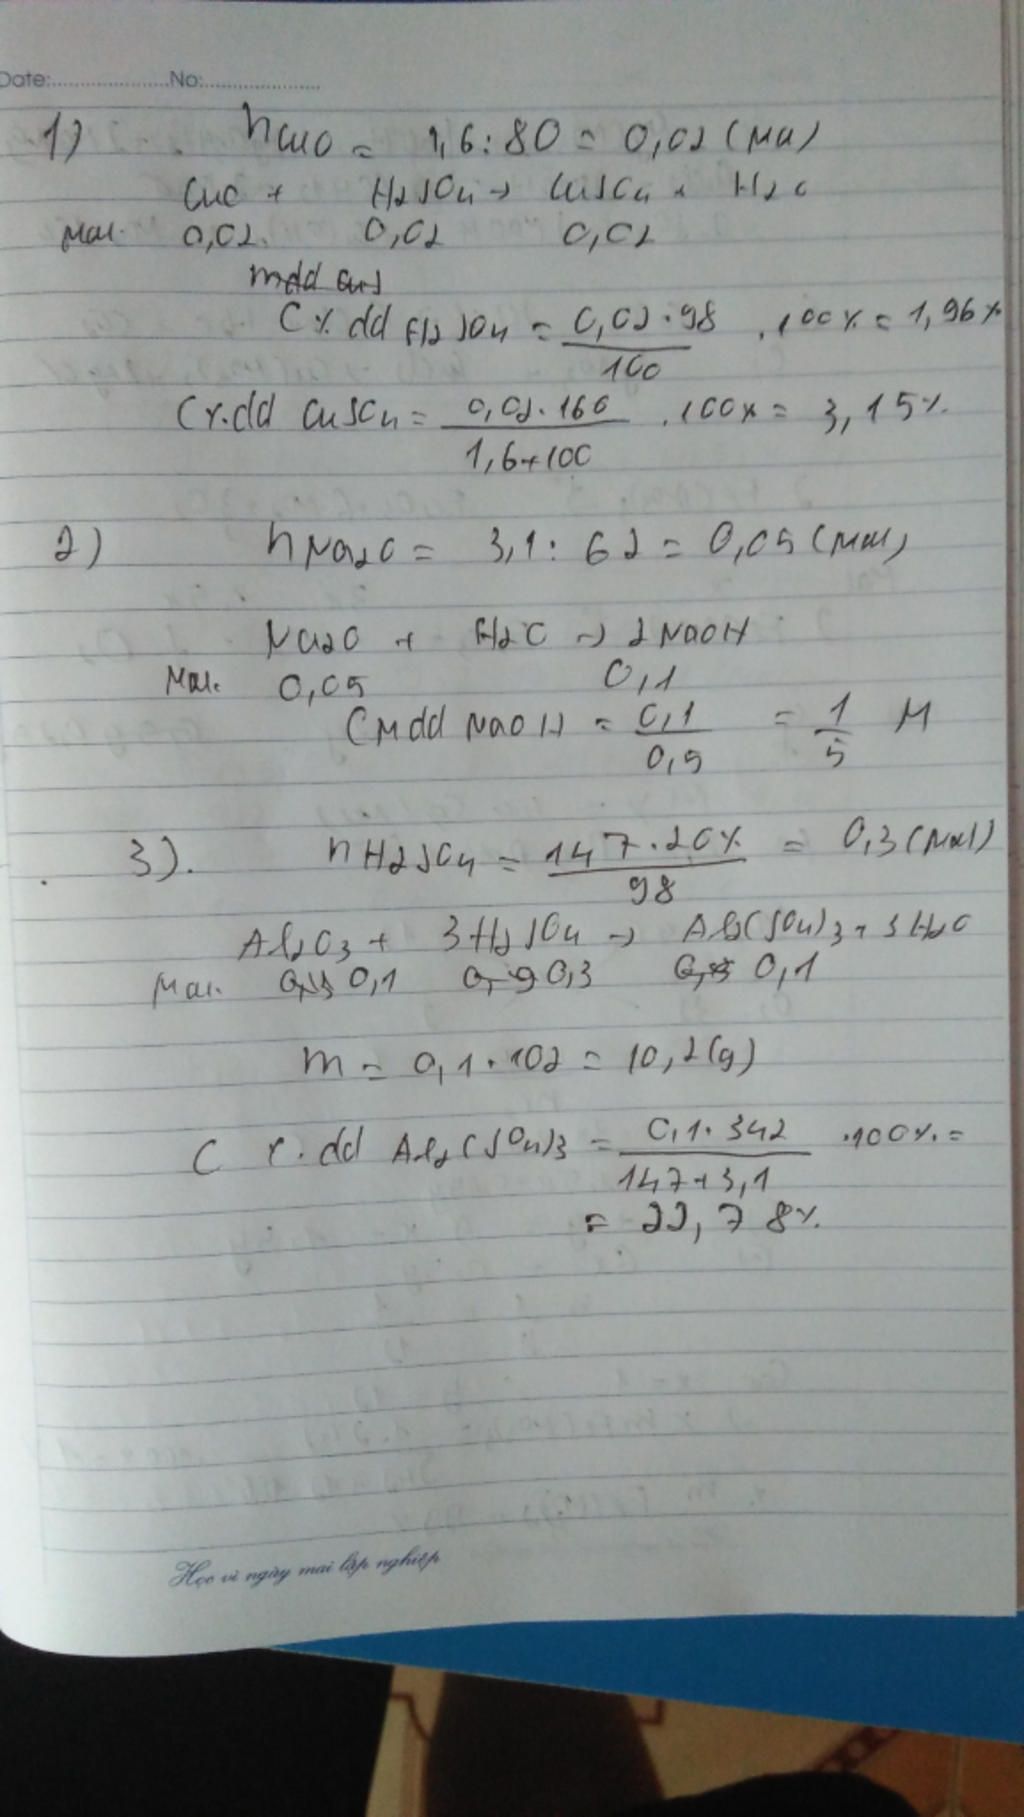 Date:......................No:......................
1) nCuO = 1,6 : 80 = 0,02 (mol)
CuO + H2SO4 → CuSO4 + H2O
Mol. 0,02. 0,02 0,02
mdd
C% dd H2SO4 = 0,02.98 / 100 .100% = 1,96%
C%.dd CuSO4 = 0,02.160 / 1,6+100 .100% = 3,15%.
2) nNa2O = 3,1 : 62 = 0,05 (mol)
Na2O + H2O → 2NaOH
Mol. 0,05 0,1
CM dd NaOH = 0,1 / 0,5 = 1 / 5 M
3). nH2SO4 = 147.20% / 98 = 0,3 (mol)
Al2O3 + 3H2SO4 → Al2(SO4)3 + 3H2O
Mol. 0,1 0,3 0,1
m = 0,1.102 = 10,2(g)
C %.dd Al2(SO4)3 = 0,1.342 / 147+3,1 .100%. =
= 22,78%.
Học vì ngày mai lập nghiệp